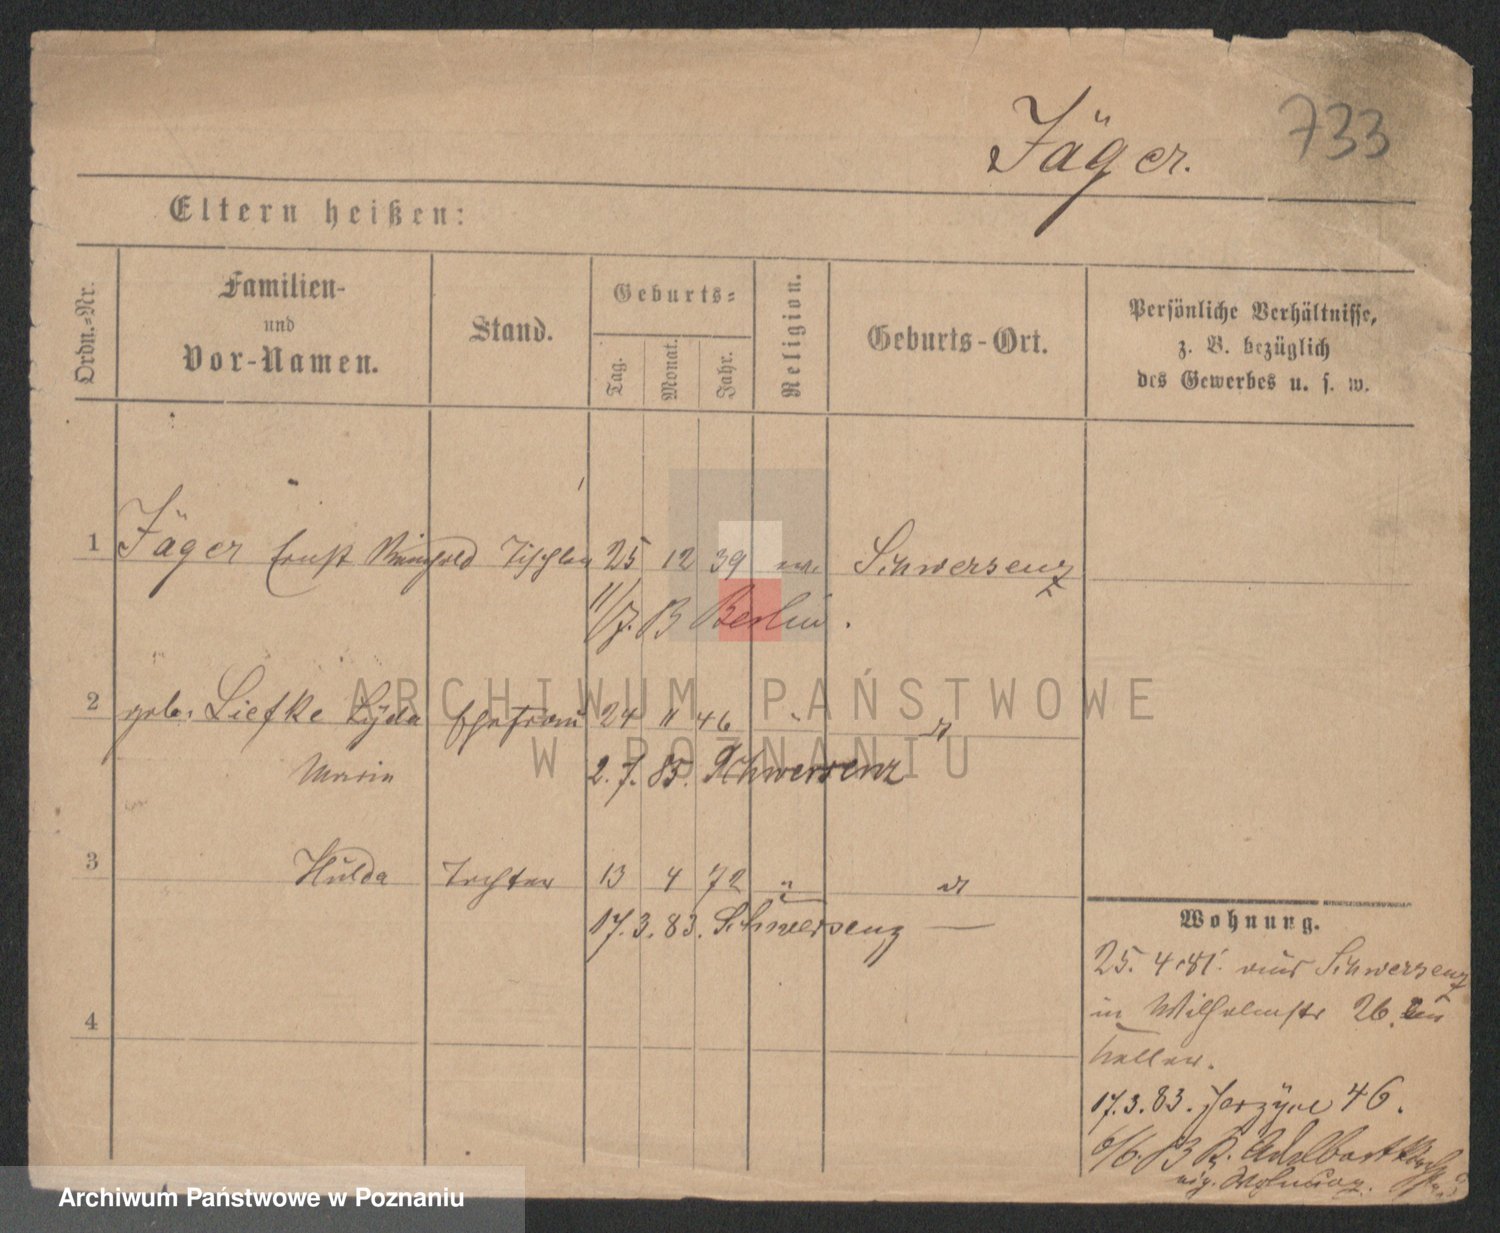 733
Jäger.
Eltern heißen:
Ordn.-Nr.
Familien-
und
Vor-Namen.
Stand.
Geburts-
Tag.
Monat.
Jahr.
Religion.
Geburts-Ort.
Persönliche Verhältnisse,
z. B. bezüglich
des Gewerbes u. s. w.
1 Jäger Ernst Reinhold Tischler 25 12 39 ev. Schwersenz
11/7. 83 Berlin.
2 geb. Liefke Lyda Ehefrau 24 11 46 "
Maria 2. 7. 85. Schwersenz
3 Hulda Tochter 13 4 72 "
17. 3. 83. Schwersenz —
4
Wohnung.
25. 4. 81. aus Schwersenz
in Wilhelmstr 26. im
Keller.
17. 3. 83. Jerzyce 46.
6/6. 83 St. Adalbert
eig. Wohnung.
ARCHIWUM PAŃSTWOWE
W POZNANIU
Archiwum Państwowe w Poznaniu